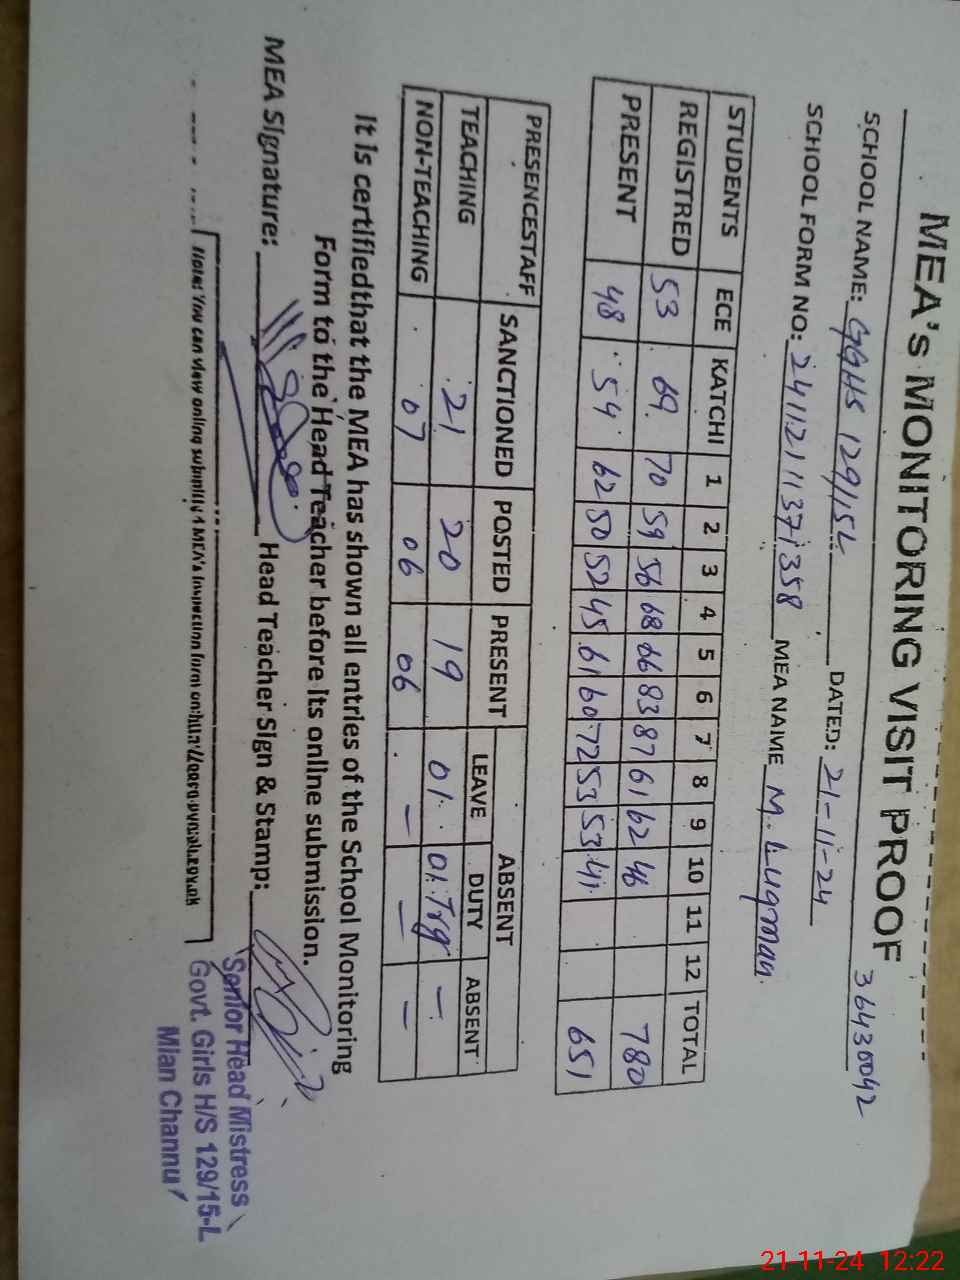 MEA's MONITORING VISIT PROOF
36430042
SCHOOL NAME: GGHS 129/15L DATED: 21-11-24
SCHOOL FORM NO: 2411211137358 MEA NAME M. Luqman
STUDENTS ECE KATCHI 1 2 3 4 5 6 7 8 9 10 11 12 TOTAL
REGISTRED 53 69 70 59 56 68 66 83 87 61 62 46 780
PRESENT 48 54 62 50 52 45 61 60 72 53 53 41 651
PRESENCESTAFF SANCTIONED POSTED PRESENT ABSENT
LEAVE DUTY ABSENT
TEACHING 21 20 19 01 01 Trg -
NON-TEACHING 07 06 06 - - -
It is certifiedthat the MEA has shown all entries of the School Monitoring
Form to the Head Teacher before its online submission.
MEA Signature: Head Teacher Sign & Stamp:
Note: You can view online MEA's Inspection form on:
Senior Head Mistress
Govt. Girls H/S 129/15-L
Mian Channu
21-11-24 12:22